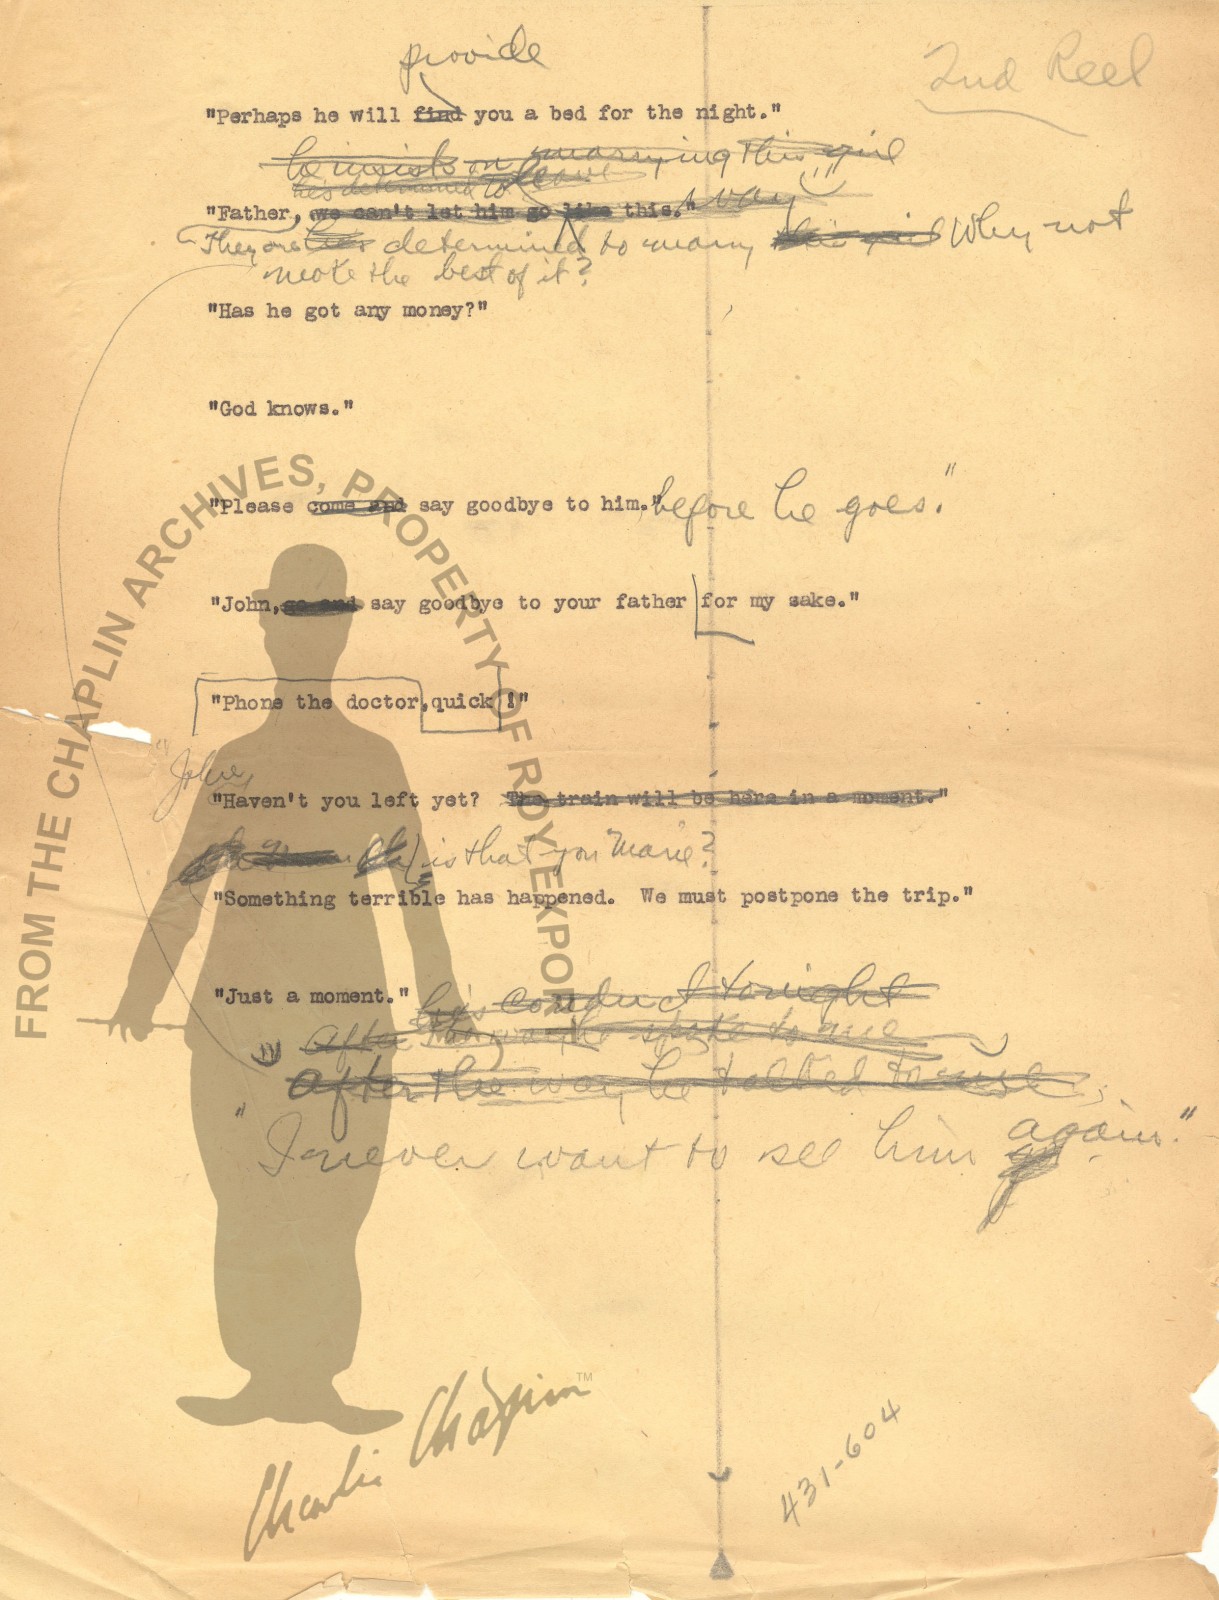 provide
2nd Reel
"Perhaps he will find you a bed for the night."
he insists on marrying this girl
he's determined to leave
"Father, we can't let him go like this."
They are determined to marry Why not
make the best of it?
"Has he got any money?"
"God knows."
"Please come and say goodbye to him." before he goes."
"John, go and say goodbye to your father for my sake."
"Phone the doctor, quick!"
"John,
"Haven't you left yet? The train will be here in a moment."
is that you Marie?
"Something terrible has happened. We must postpone the trip."
"Just a moment."
his conduct tonight
after the way he spoke to me
after the way he talked to me
"I never want to see him again."
431-604
FROM THE CHAPLIN ARCHIVES, PROPERTY OF ROY EXPORT
Charlie Chaplin™